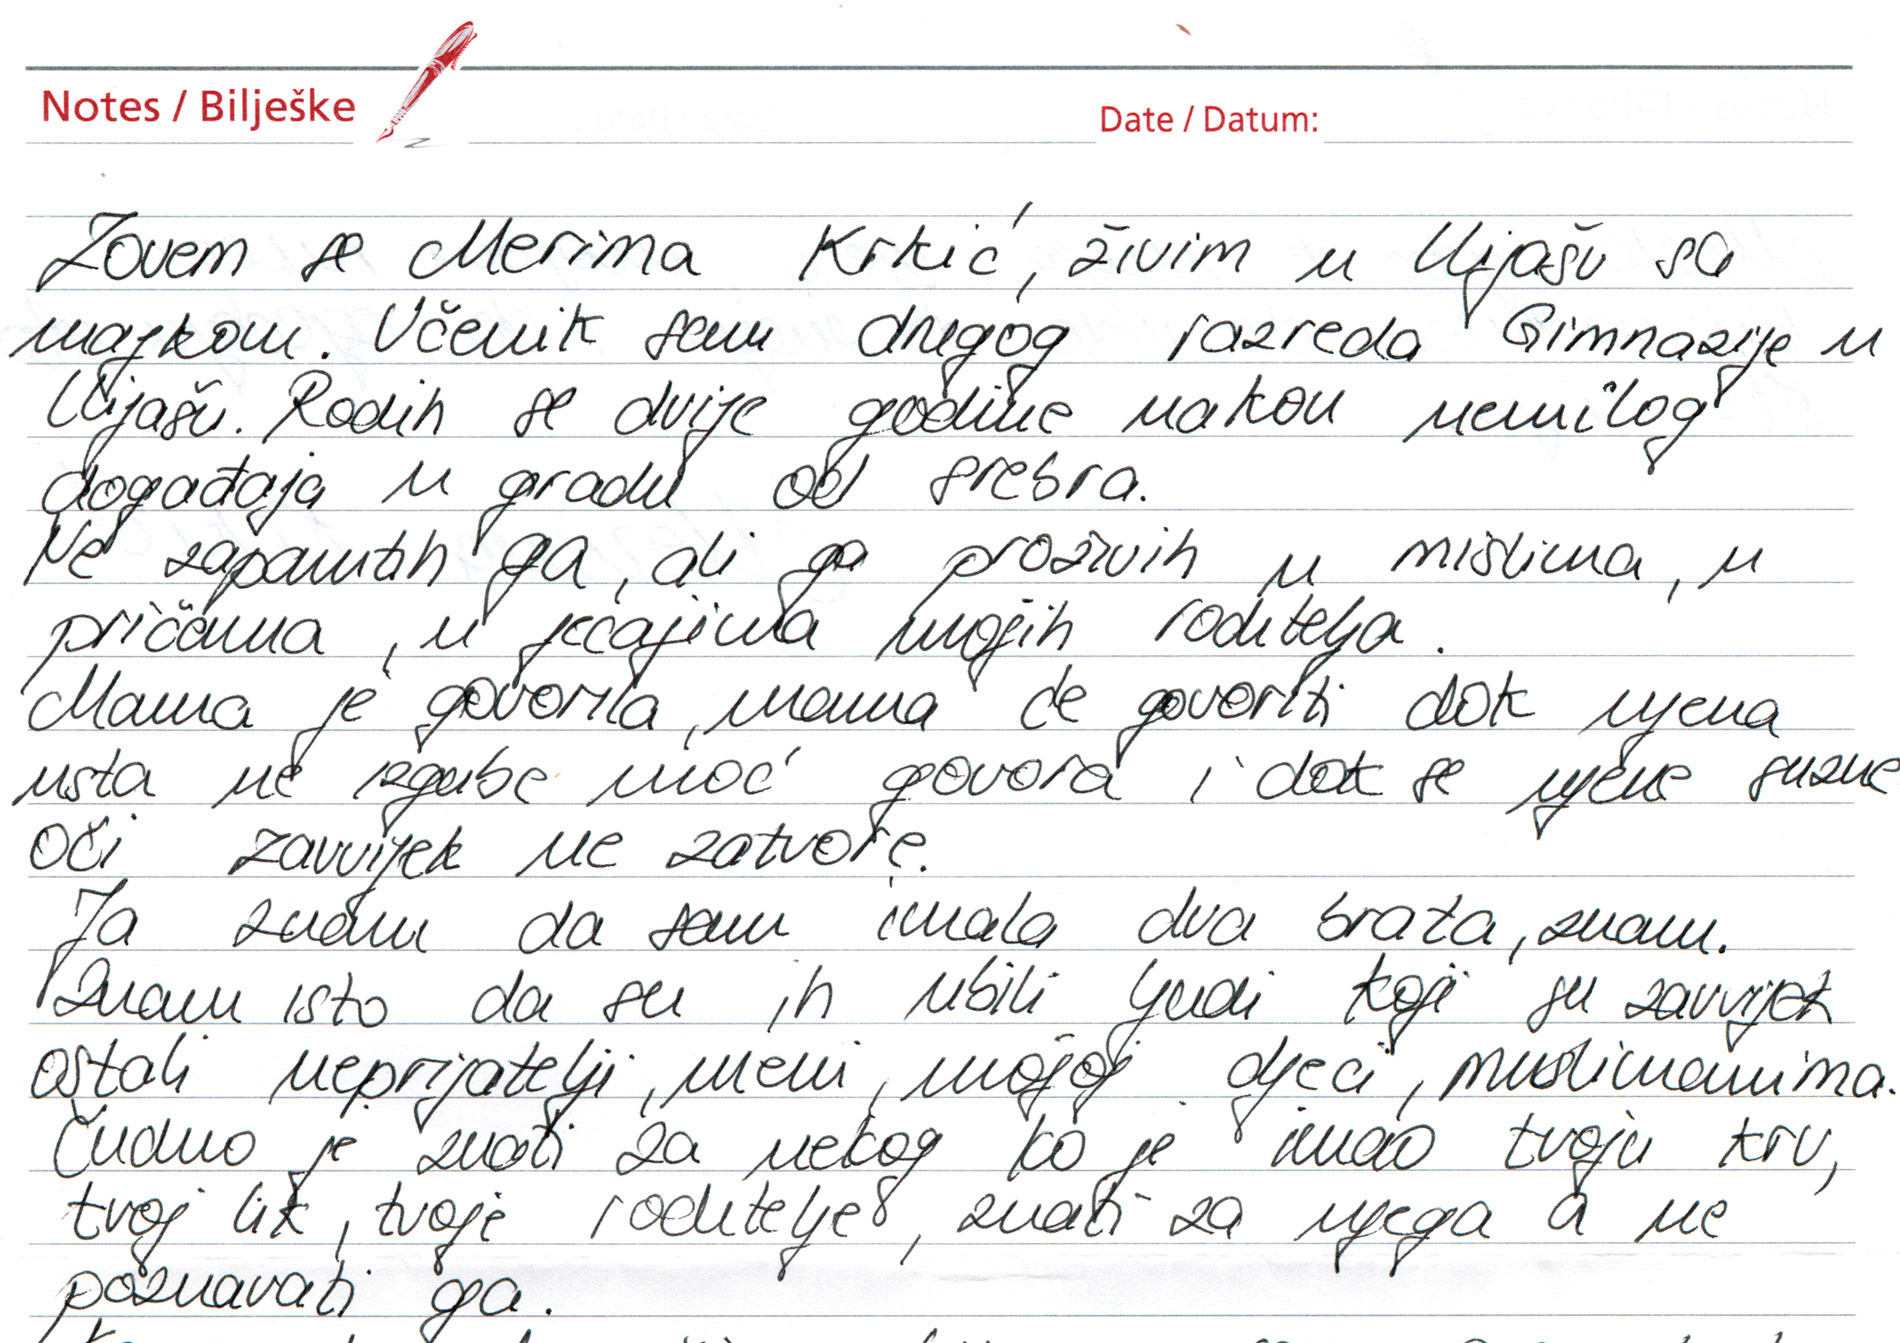 Notes / Bilješke
Date / Datum:
Zovem se Merima Krkić, živim u Ilijašu sa
majkom. Učenik sam drugog razreda Gimnazije u
Ilijašu. Rodih se dvije godine nakon nemilog
događaja u gradu od srebra.
Ne zapamtih ga, ali ga proživih u mislima, u
pričama, u jecajima mojih roditelja.
Mama je govorila, mama će govoriti dok njena
usta ne izgube moć govora i dok se njene suzne
oči zavvijek ne zatvore.
Ja znam da sam imala dva brata, znam.
Znam isto da su ih ubili ljudi koji su zavvijek
ostali neprijatelji, meni, mojoj djeci, muslimanima.
Čudno je znati za nekog ko je imao tvoju krv,
tvoj lik, tvoje roditelje, znati za njega a ne
poznavati ga.